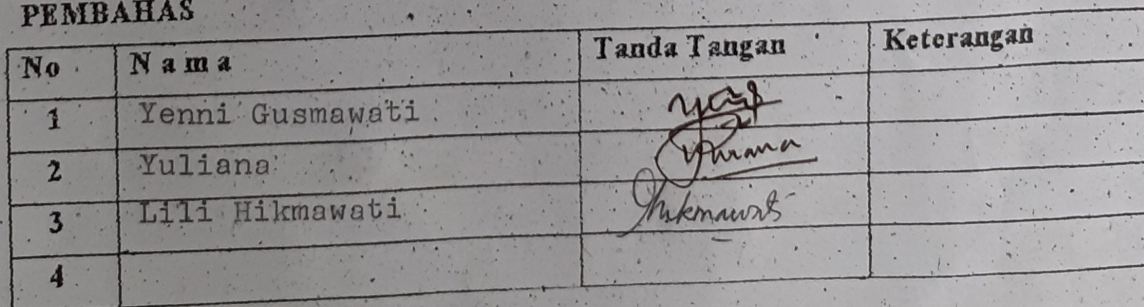 PEMBAHAS
No Nama Tanda Tangan Keterangan
1 Yenni Gusmawati
2 Yuliana
3 Lili Hikmawati
4